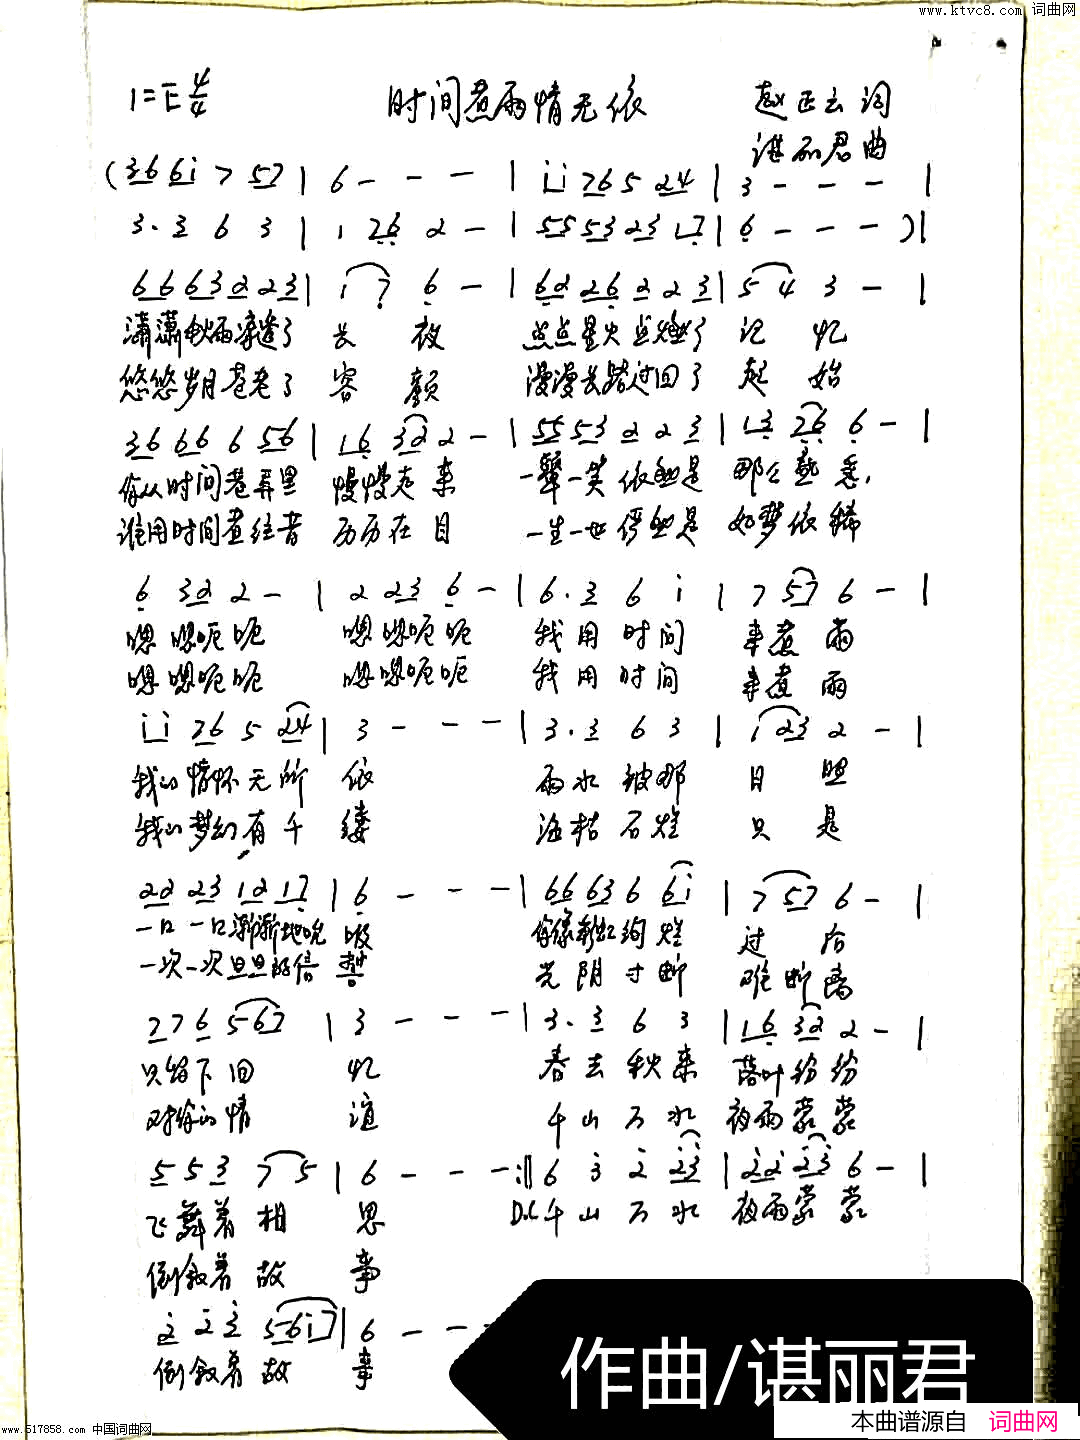 www.ktvc8.com 词曲网
1=E 4/4 时间煮雨情无依 赵正云 词
谌丽君 曲
(3 6 6 i 7 5 7 | 6 - - - | i i 7 6 5 2 4 | 3 - - - |
3. 3 6 3 | 1 2 6 2 - | 5 5 5 3 2 3 1 7 | 6 - - - )|
6 6 6 3 2 2 3 | i 7 6 - | 6 2 2 6 2 2 3 | 5 4 3 - |
潇潇秋雨凉透了 长 夜 点点星火点燃了 记 忆
悠悠岁月苍老了 容 颜 漫漫长路过回了 起 始
3 6 6 6 6 5 6 | 1 6 3 2 2 - | 5 5 5 3 2 2 3 | 1 3 7 6 6 - |
你从时间巷弄里 慢慢走来 一颦一笑依然是 那么熟悉,
谁用时间煮往昔 历历在目 一生一世俨然是 如梦依稀
6 3 2 2 - | 2 2 3 6 - | 6. 3 6 i | 7 5 7 6 - |
嗯 嗯呃呃 嗯 嗯呃呃 我用时间 来煮雨
嗯 嗯呃呃 嗯嗯呃呃 我用时间 来煮雨
i i 7 6 5 2 4 | 3 - - - | 3. 3 6 3 | 1 2 3 2 - |
我的情怀无所 依 雨水被那 目 光
我的梦幻有千 缕 海枯石烂 只 是
2 2 2 3 1 2 1 7 | 6 - - - | 6 6 6 3 6 6 i | 7 5 7 6 - |
一口一口渐渐地吮 吸 你像彩虹绚烂 过 后
一次一次旦旦的信 誓 光阴寸断 难断离
7 7 6 5 6 7 | 3 - - - | 3. 3 6 3 | 1 6 3 2 2 - |
只留下回 忆 春去秋来 落叶纷纷
对你的情 谊 千山万水 夜雨蒙蒙
5 5 3 7 5 | 6 - - - :|| 6 3 2 2 3 | 2 2 2 3 6 - |
飞舞着相 思 D.C 千山万水 夜雨蒙蒙
倒叙着故 事
2 2 3 5 6 i 7 | 6 - - -
倒叙着故 事
作曲/谌丽君
本曲谱源自 词曲网
www.517858.com 中国词曲网